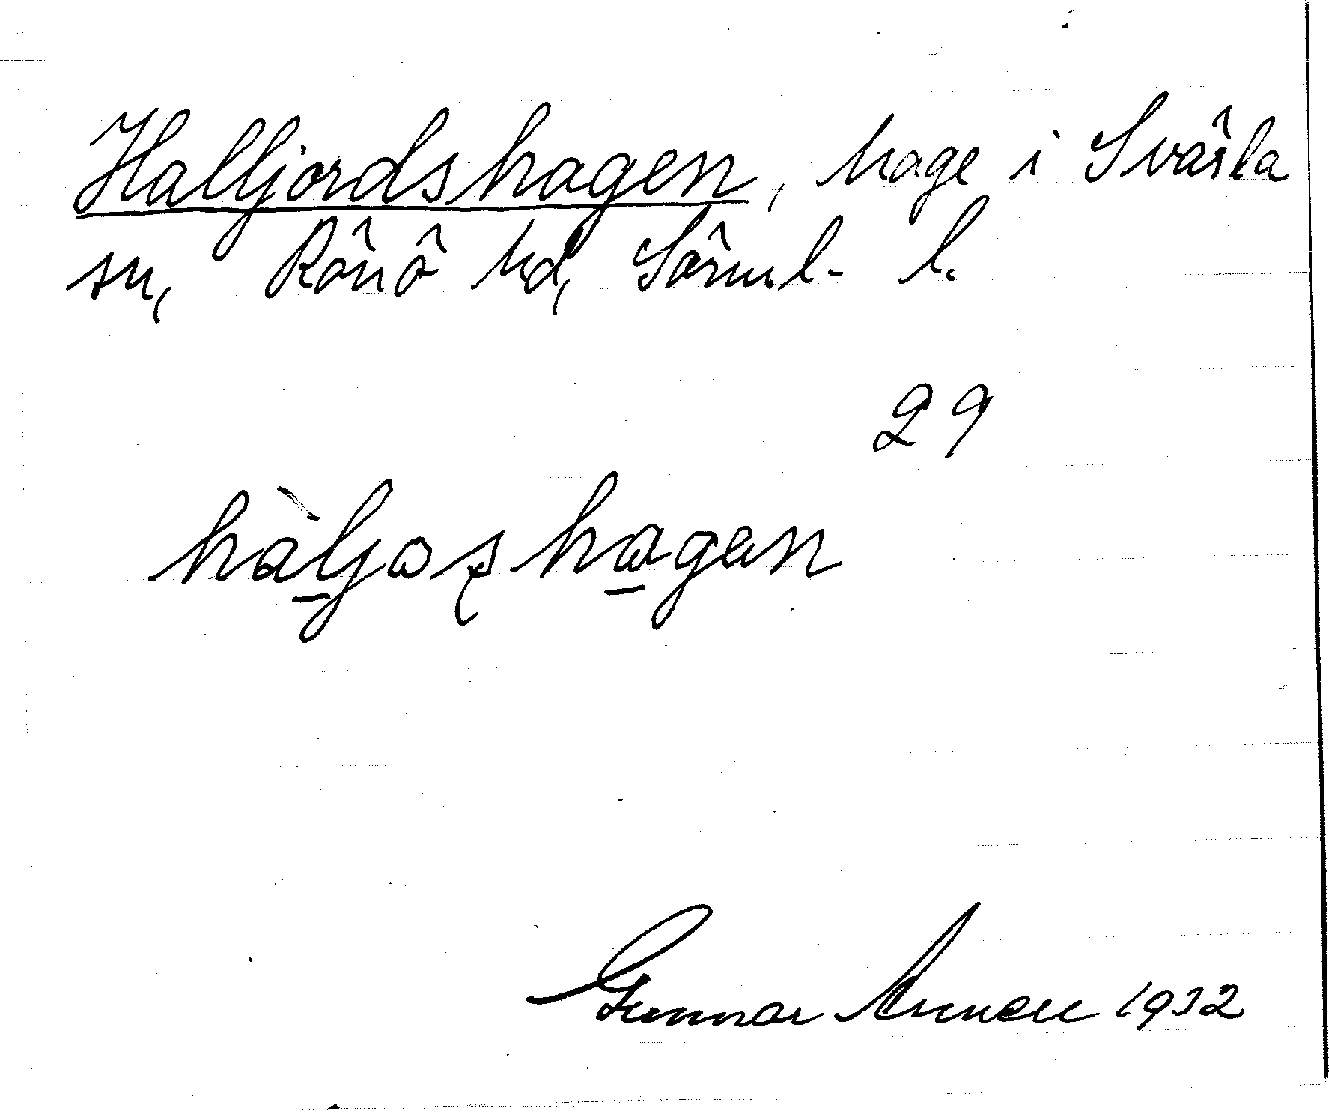 Halljordshagen, hage i Svärta
sn, Rönö hd, Sörml. l.
29
hàljoʂhagen
Gunnar 1932